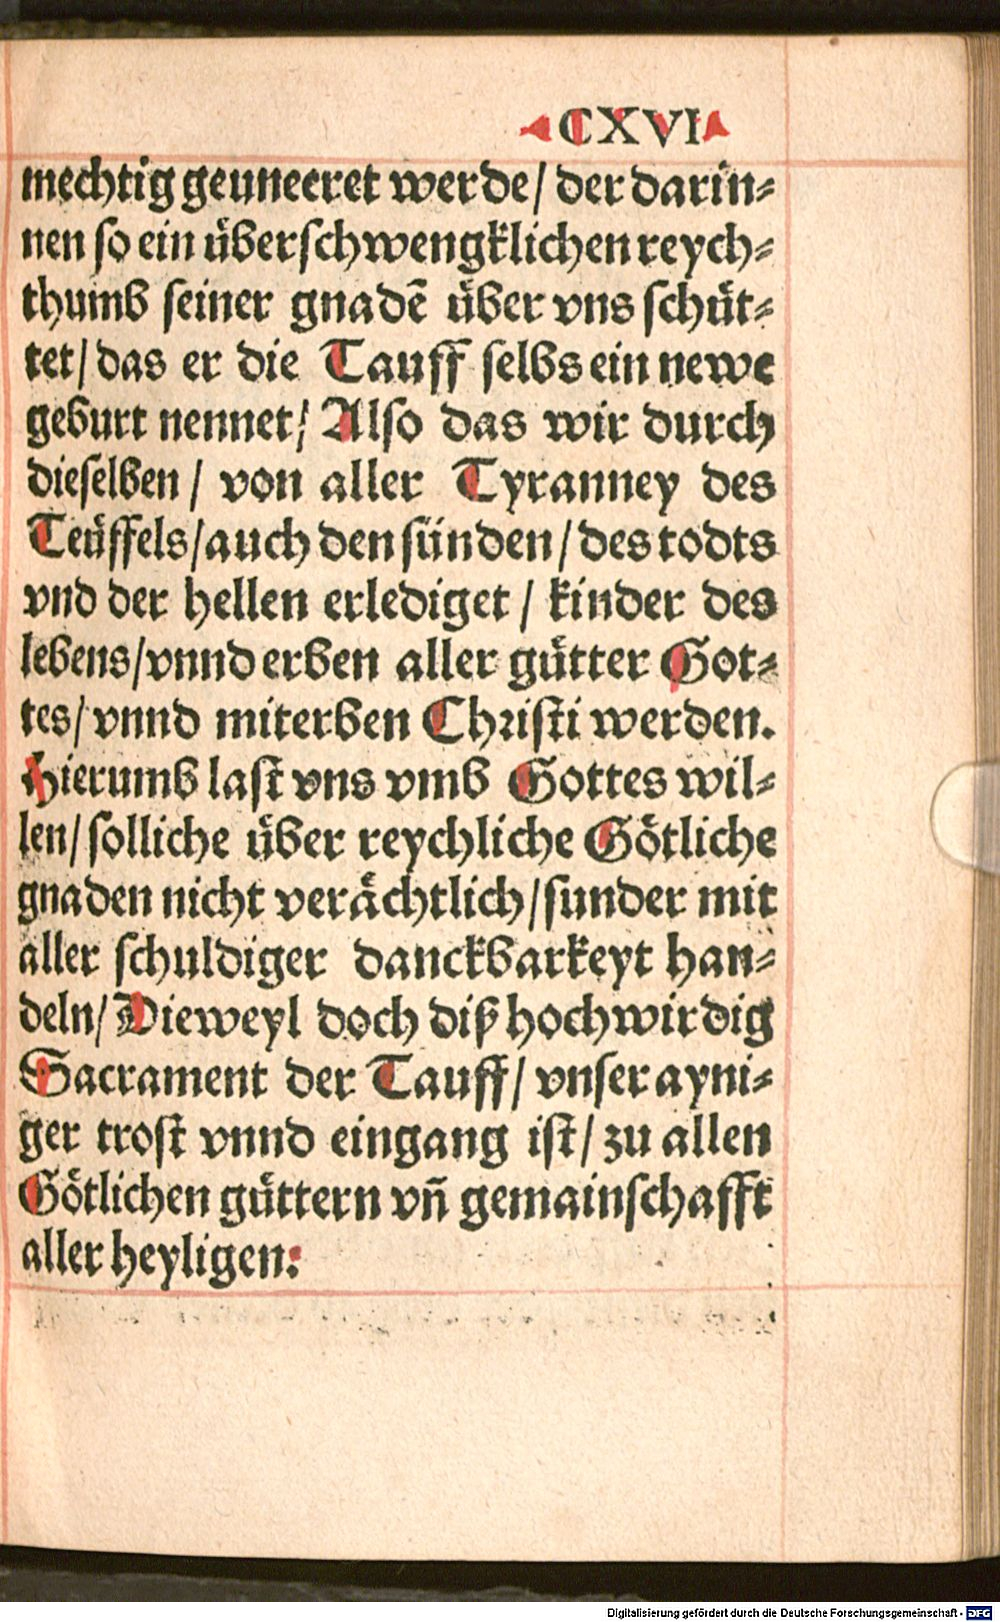 CXVI
mechtig geuneeret werde/ der darin⸗
nen so ein uͤberschwengklichen reych⸗
thumb seiner gnadē uͤber vns schuͤt⸗
tet/ das er die Tauff selbs ein newe
geburt nennet/ Also das wir durch
dieselben/ von aller Tyranney des
Teuͤffels/ auch den suͤnden/ des todts
vnd der hellen erlediget/ kinder des
lebens/ vnnd erben aller guͤtter Got⸗
tes/ vnnd miterben Christi werden.
Hierumb last vns vmb Gottes wil⸗
len/ solliche uͤber reychliche Goͤtliche
gnaden nicht veraͤchtlich/ sunder mit
aller schuldiger danckbarkeyt han⸗
deln/ Dieweyl doch diß hochwirdig
Sacrament der Tauff/ vnser ayni⸗
ger trost vnnd eingang ist/ zu allen
Goͤtlichen guͤttern vn̄ gemainschafft
aller heyligen:
Digitalisierung gefördert durch die Deutsche Forschungsgemeinschaft - DFG